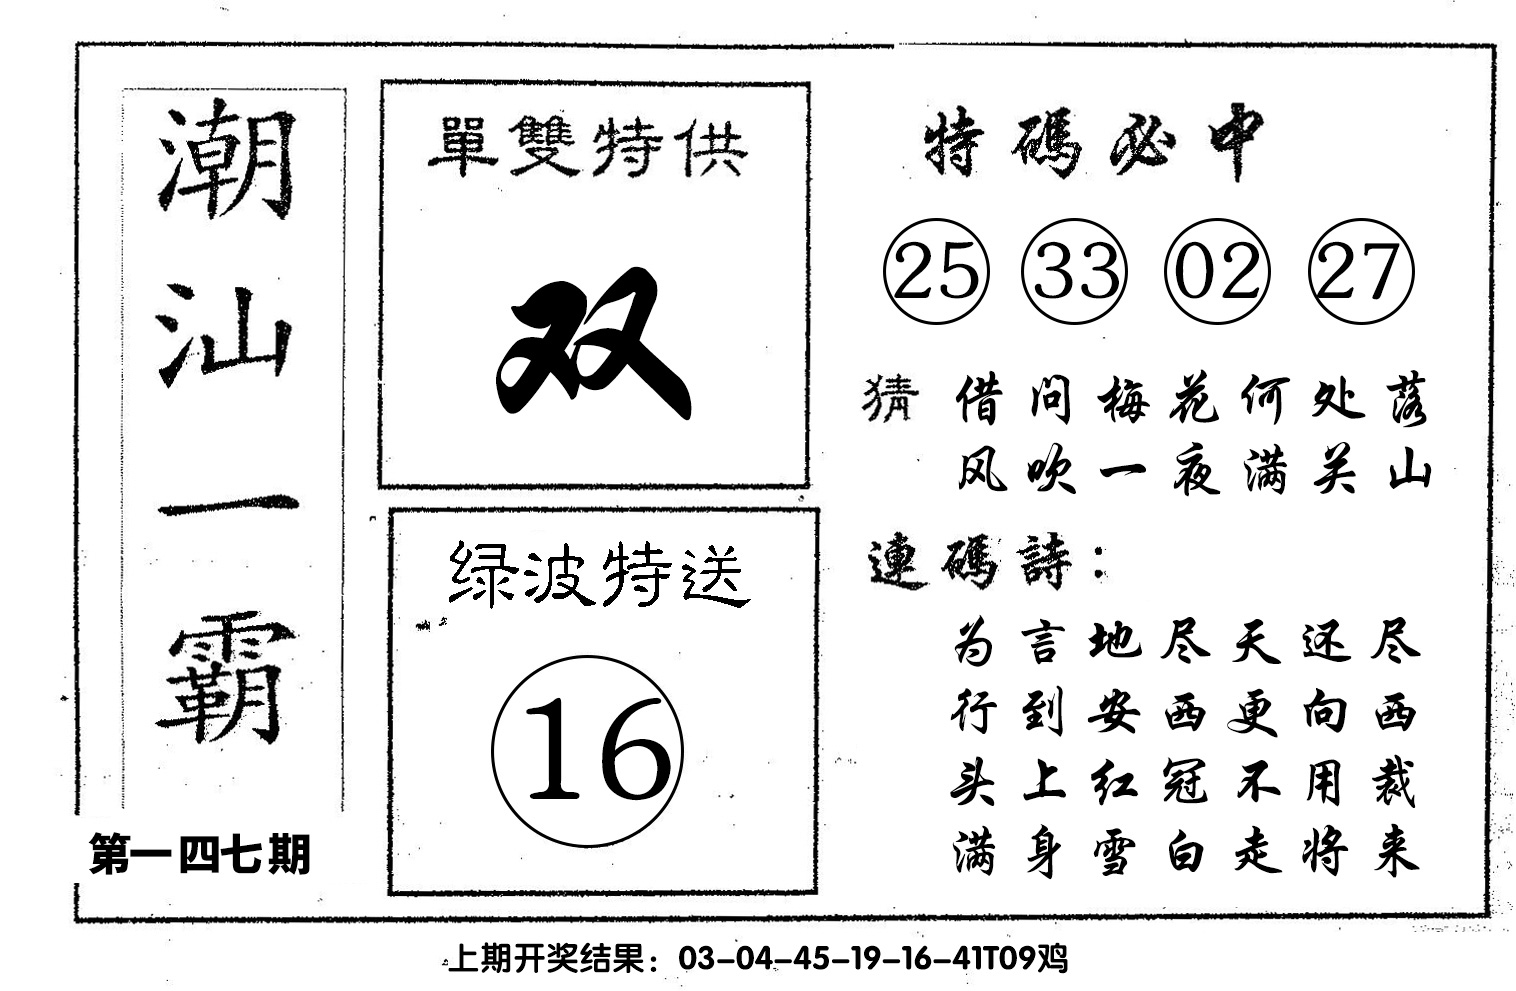 潮汕一霸
第一四七期
單雙特供
双
绿波特送
16
特碼必中
25 33 02 27
猜 借问梅花何处落
风吹一夜满关山
連碼詩：
为言地尽天还尽
行到安西更向西
头上红冠不用裁
满身雪白走将来
上期开奖结果：03-04-45-19-16-41T09鸡